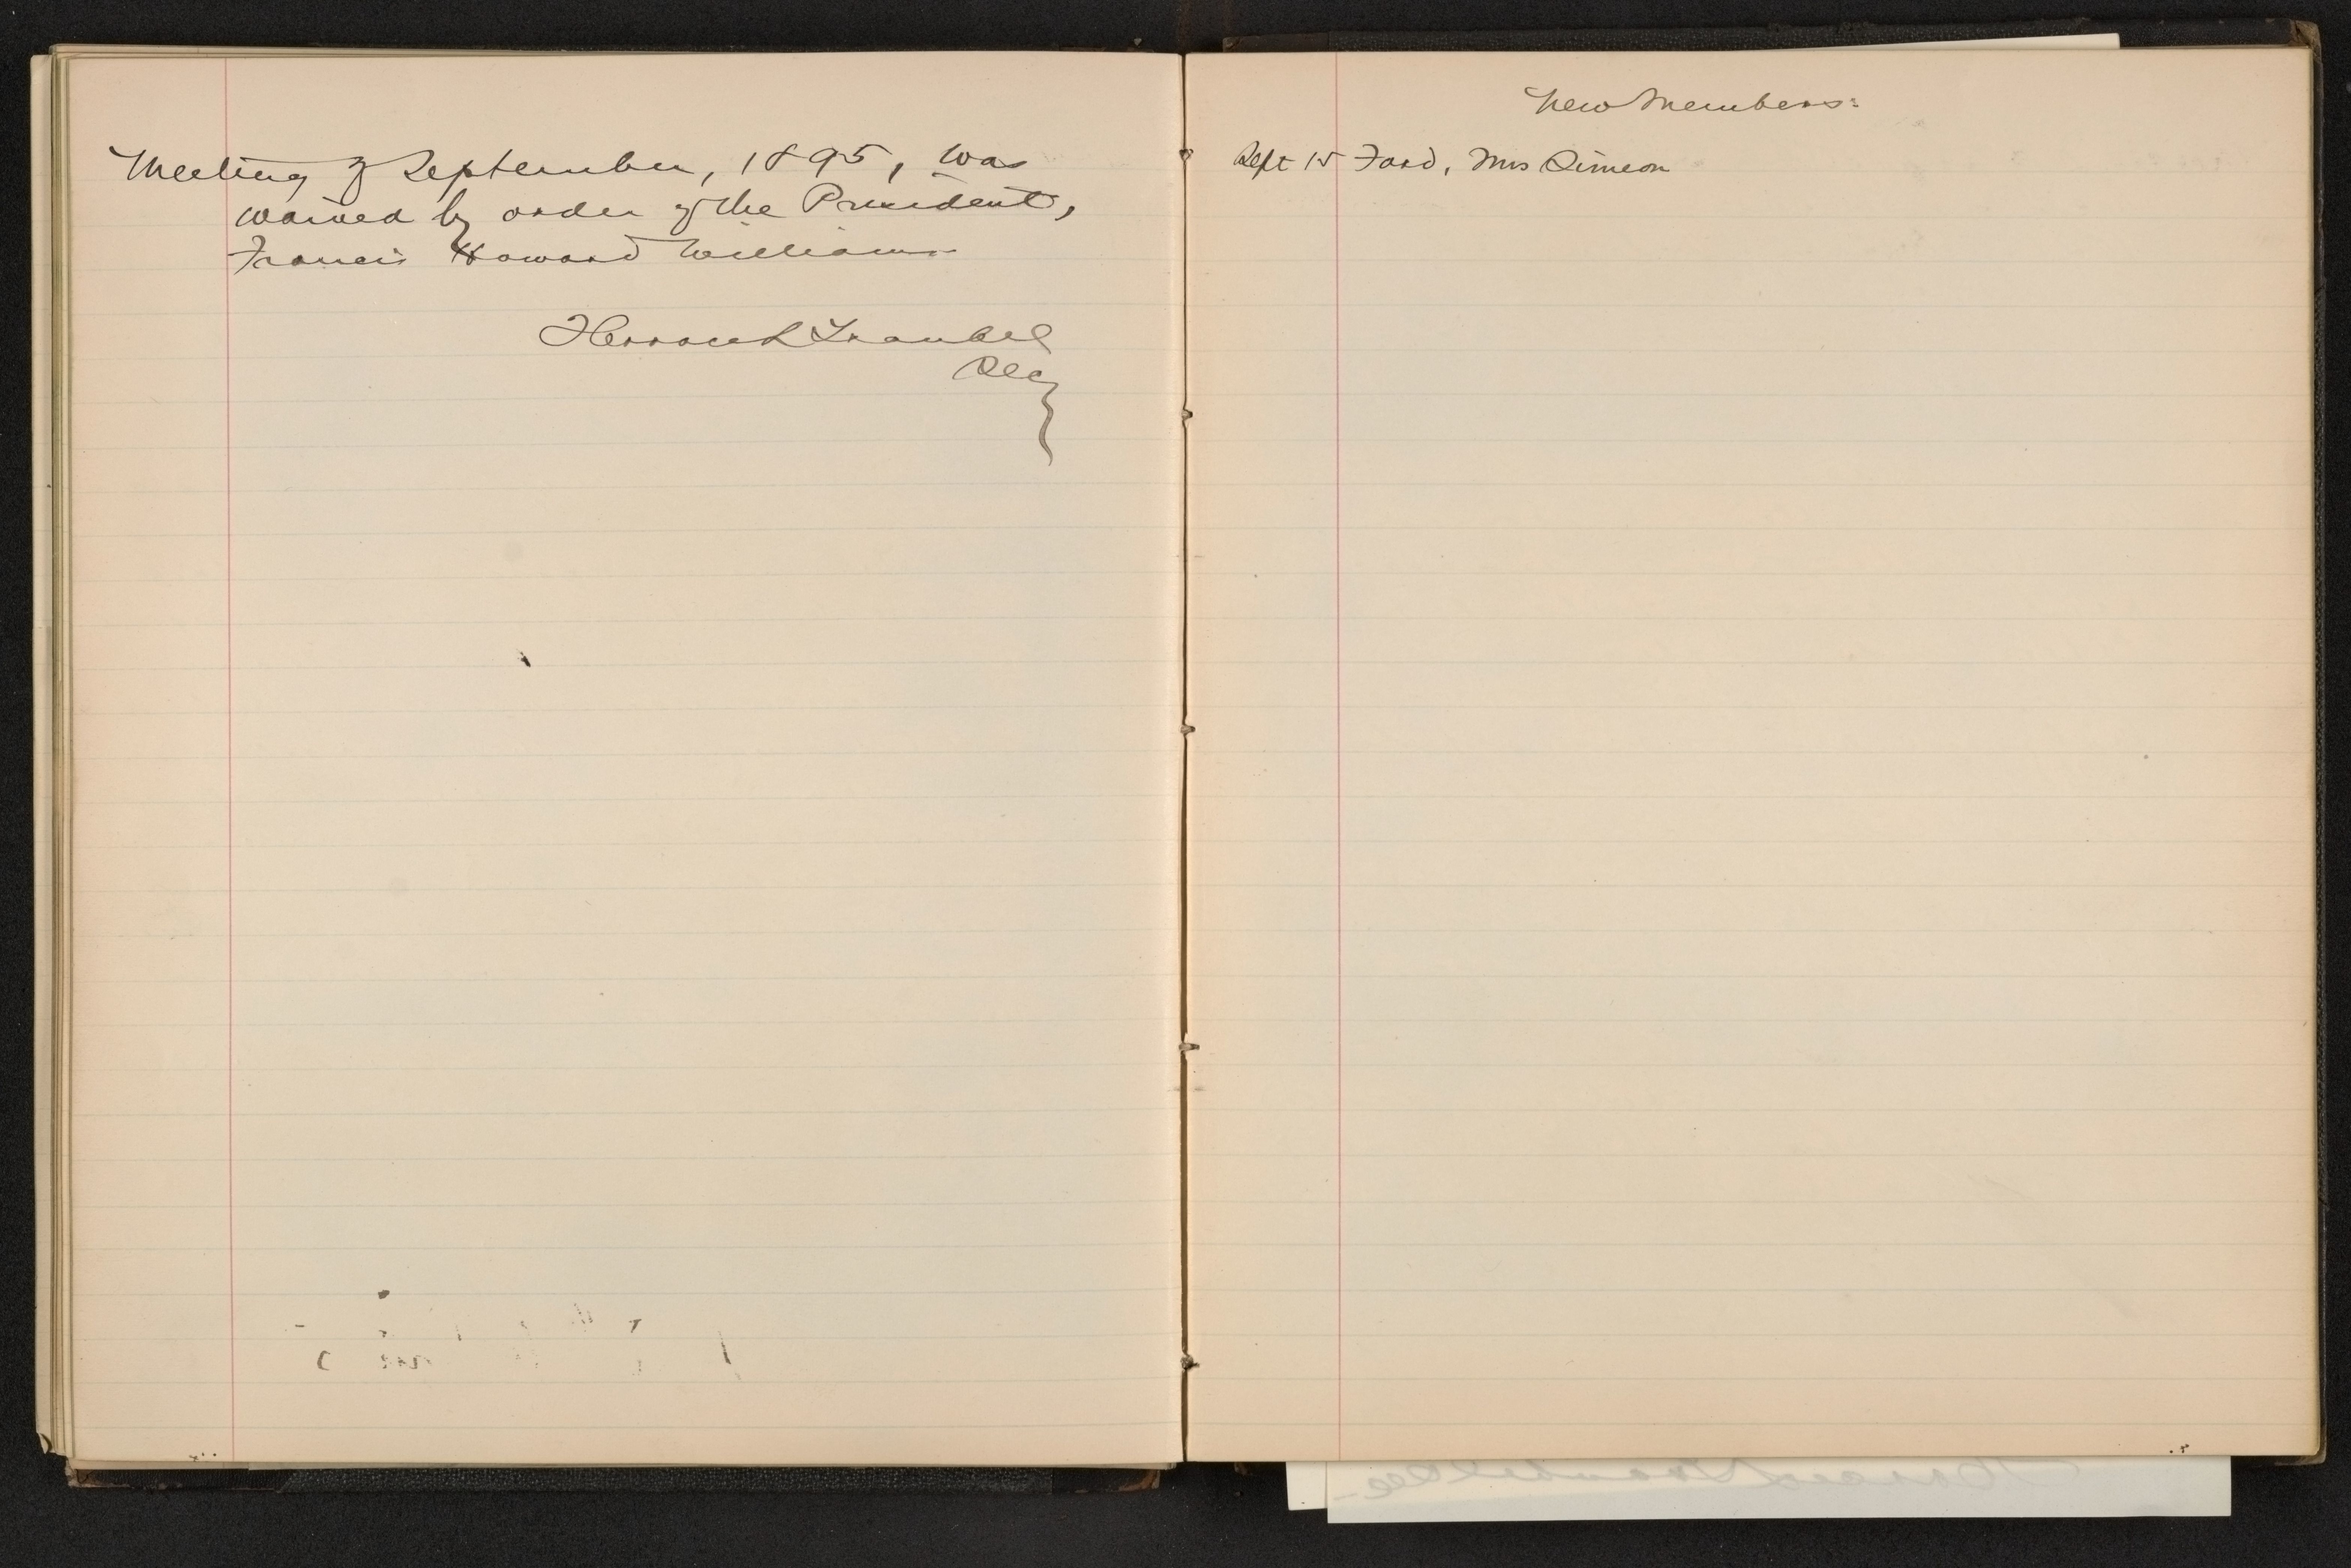 Meeting of September, 1895, was
waived by order of the President,
Francis Howard Williams
Horace L Traubel
Secy
New Members:
Sept 15 Ford, Mrs Simeon